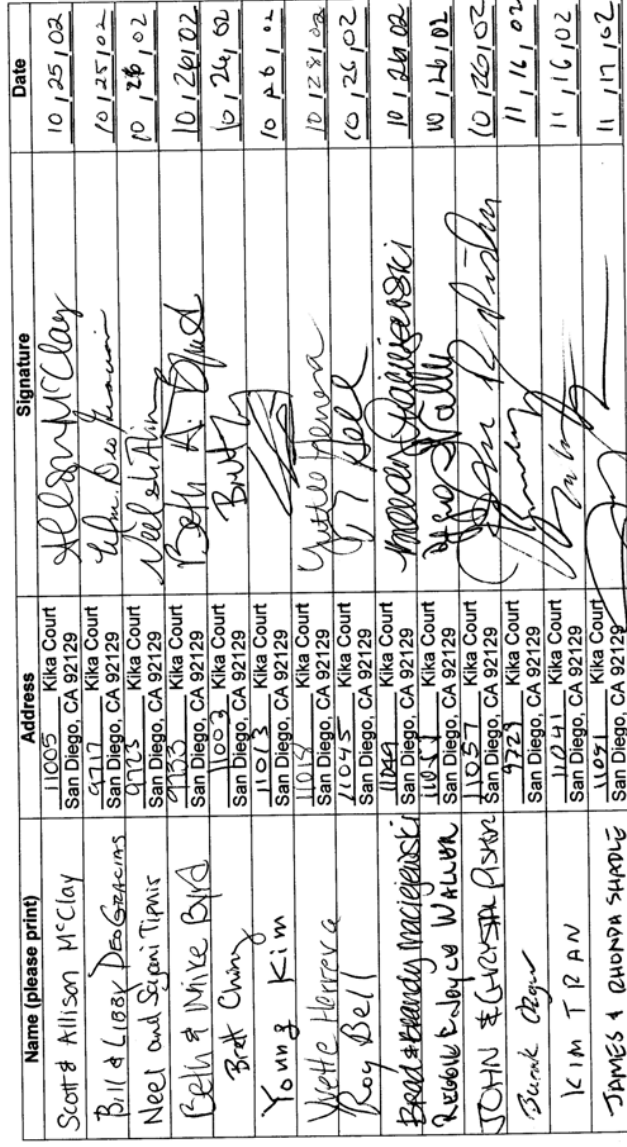 Name (please print) Address Signature Date
Scott & Allison McClay 11005 Kika Court San Diego, CA 92129 Allison McClay 10, 25, 02
Bill & Libby DeoGracias 9717 Kika Court San Diego, CA 92129 10, 25, 02
Neel and Sajani Tipnis 9723 Kika Court San Diego, CA 92129 10, 26, 02
Beth & Mike Byrd 9733 Kika Court San Diego, CA 92129 Beth A. Byrd 10, 26, 02
Brett Ching 11003 Kika Court San Diego, CA 92129 Brett 10, 26, 02
Young Kim 11013 Kika Court San Diego, CA 92129 10, 26, 02
Yvette Herrera Kika Court San Diego, CA 92129 Yvette Herrera 10, 28, 02
Roy Bell 11045 Kika Court San Diego, CA 92129 Roy Bell 10, 26, 02
Brad & Brandy Maciejewski 11049 Kika Court San Diego, CA 92129 10, 26, 02
Reggie & Joyce Walker Kika Court San Diego, CA 92129 10, 26, 02
JOHN & CRYSTAL PISHKO 11057 Kika Court San Diego, CA 92129 10, 26, 02
Burak 9729 Kika Court San Diego, CA 92129 11, 16, 02
KIM TRAN 11041 Kika Court San Diego, CA 92129 11, 16, 02
JAMES & RHONDA SHADLE Kika Court San Diego, CA 92129 11, 17, 02